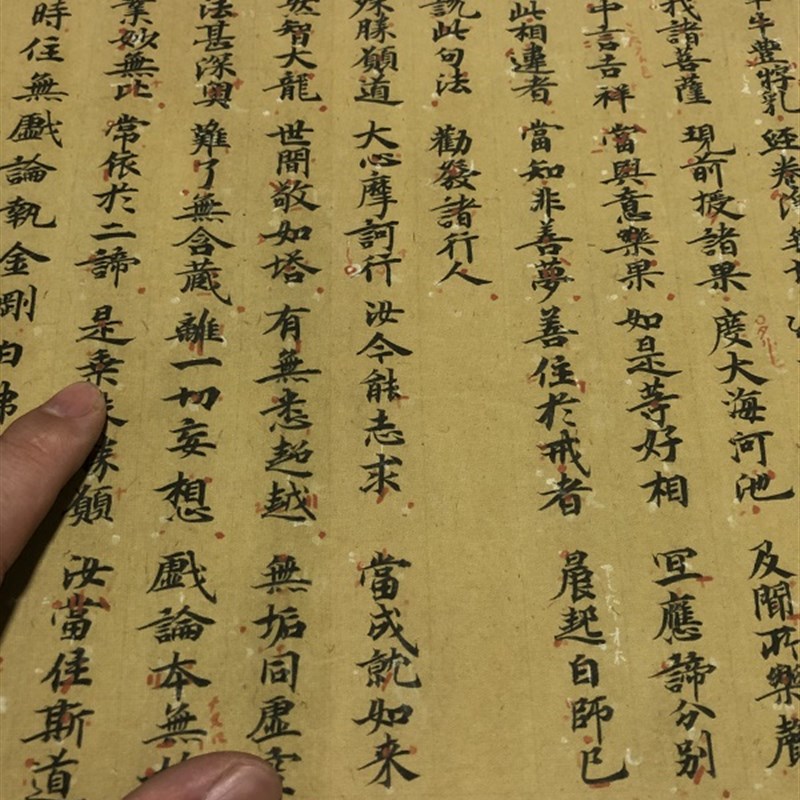 牛豐牸乳 經卷淨
我諸菩薩 現前授諸果 度大海河池 及聞所樂聲
中言吉祥 當與意樂果 如是等好相 宜應諦分別
此相違者 當知非善夢 善住於戒者 晨起白師已
說此句法 勸發諸行人
殊勝願道 大心摩訶衍 汝今能志求 當成就如来
然智大龍 世間敬如塔 有無悉超越 無垢同虛空
法甚深奧 難了無含藏 離一切妄想 戲論本無
業妙無比 常依於二諦 是乘殊勝願 汝當住斯道
時住無戲論執金剛白佛